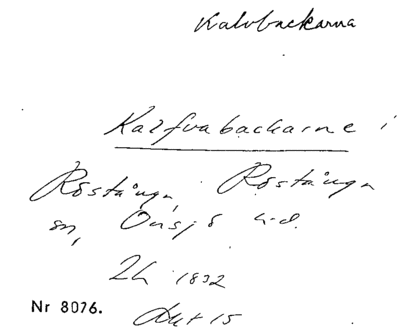 Kalvbackarna
Kalfvabackarne i
Röstånga, Röstånga
sn, Onsjö hd.
Lh 1832
Nr 8076. Akt 15